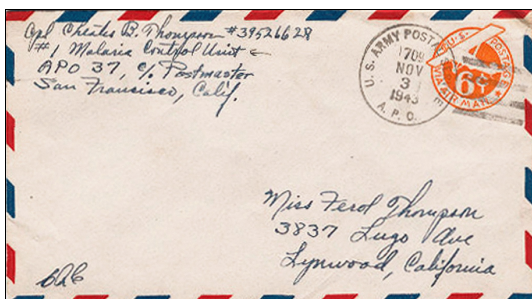 Cpl Chester B. Thompson #39526628
#1 Malaria Control Unit
APO 37, c/o Postmaster
San Francisco, Calif.
U.S. ARMY POSTAL
709
NOV
3
1943
A. P. O.
U.S. POSTAGE
6¢
VIA AIR MAIL
Miss Ferol Thompson
3837 Lugo Ave
Lynwood, California